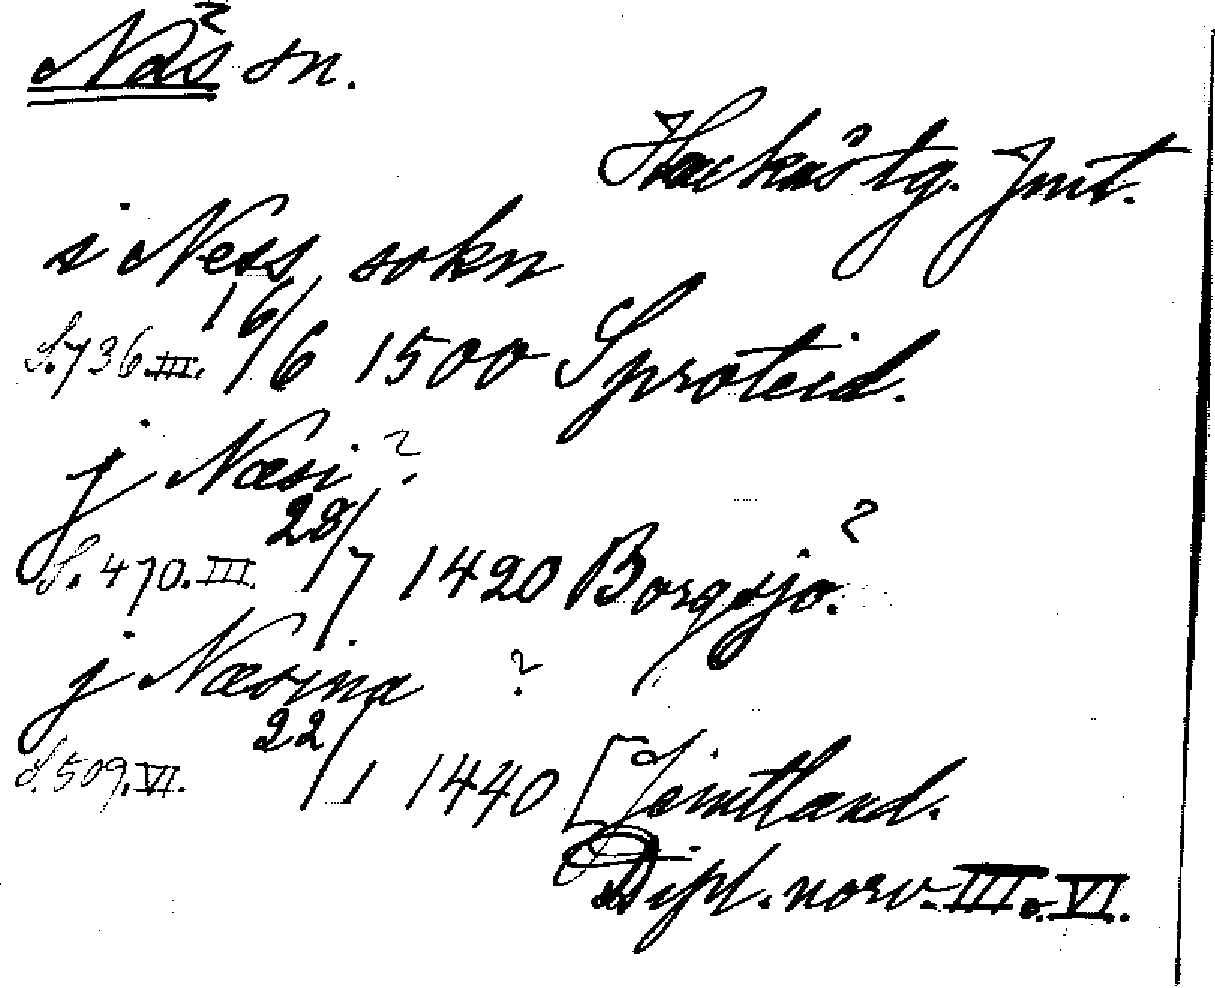 Näs sn.
Hackås tg. Jmt.
i Ness sokn
S. 736. III. 16/6 1500 Sproteid.
j Næsi ?
S. 470. III. 28/7 1420 Borgsjö.
j Næsina ?
S. 509. VI. 22/1 1440 [Jemtland.
Dipl. norv. III o. VI.